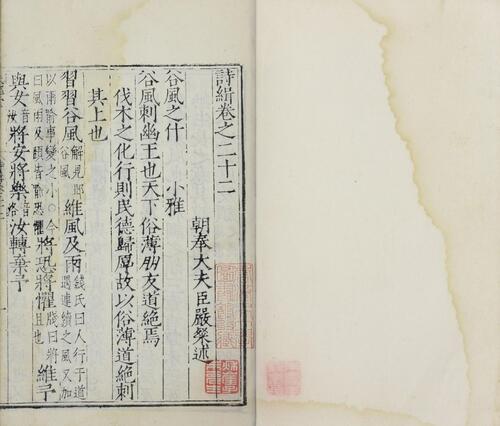 詩緝卷之二十二
朝奉大夫臣嚴粲述
谷風之什 小雅
谷風刺幽王也天下俗薄朋友道絶焉
伐木之化行則民德歸厚故以俗薄道絶刺
其上也
習習谷風解見邶谷風維風及雨錢氏曰人行于道遇連續之風又加
以雨喻事變之小〇今
曰風雨及頹皆喻恐懼將恐將懼箋曰將且也維予
與女音汝將安將樂音洛汝轉棄予